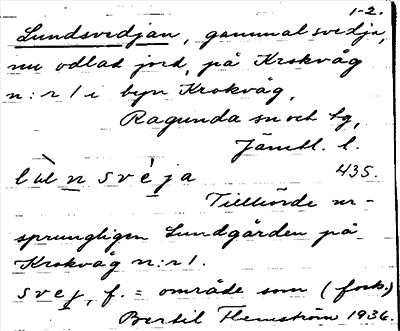 1-2.
Lundsvedjan, gammal svedja,
nu odlad jord, på Krokvåg
n:r 1 i byn Krokvåg,
Ragunda sn och tg,
Jämtl. l.
lùnsvèja 435.
Tillhörde ur-
sprungligen Lundgården på
Krokvåg n:r 1.
svej, f. = område som (fork.)
Bertil Flemström 1936.